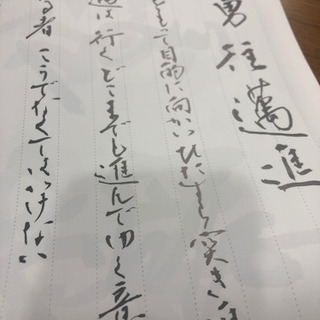 勇往邁進
もって目的に向かいひたすら突き進
邁は行くどこまでも進んでゆく意
る者こうでなくてはいけない